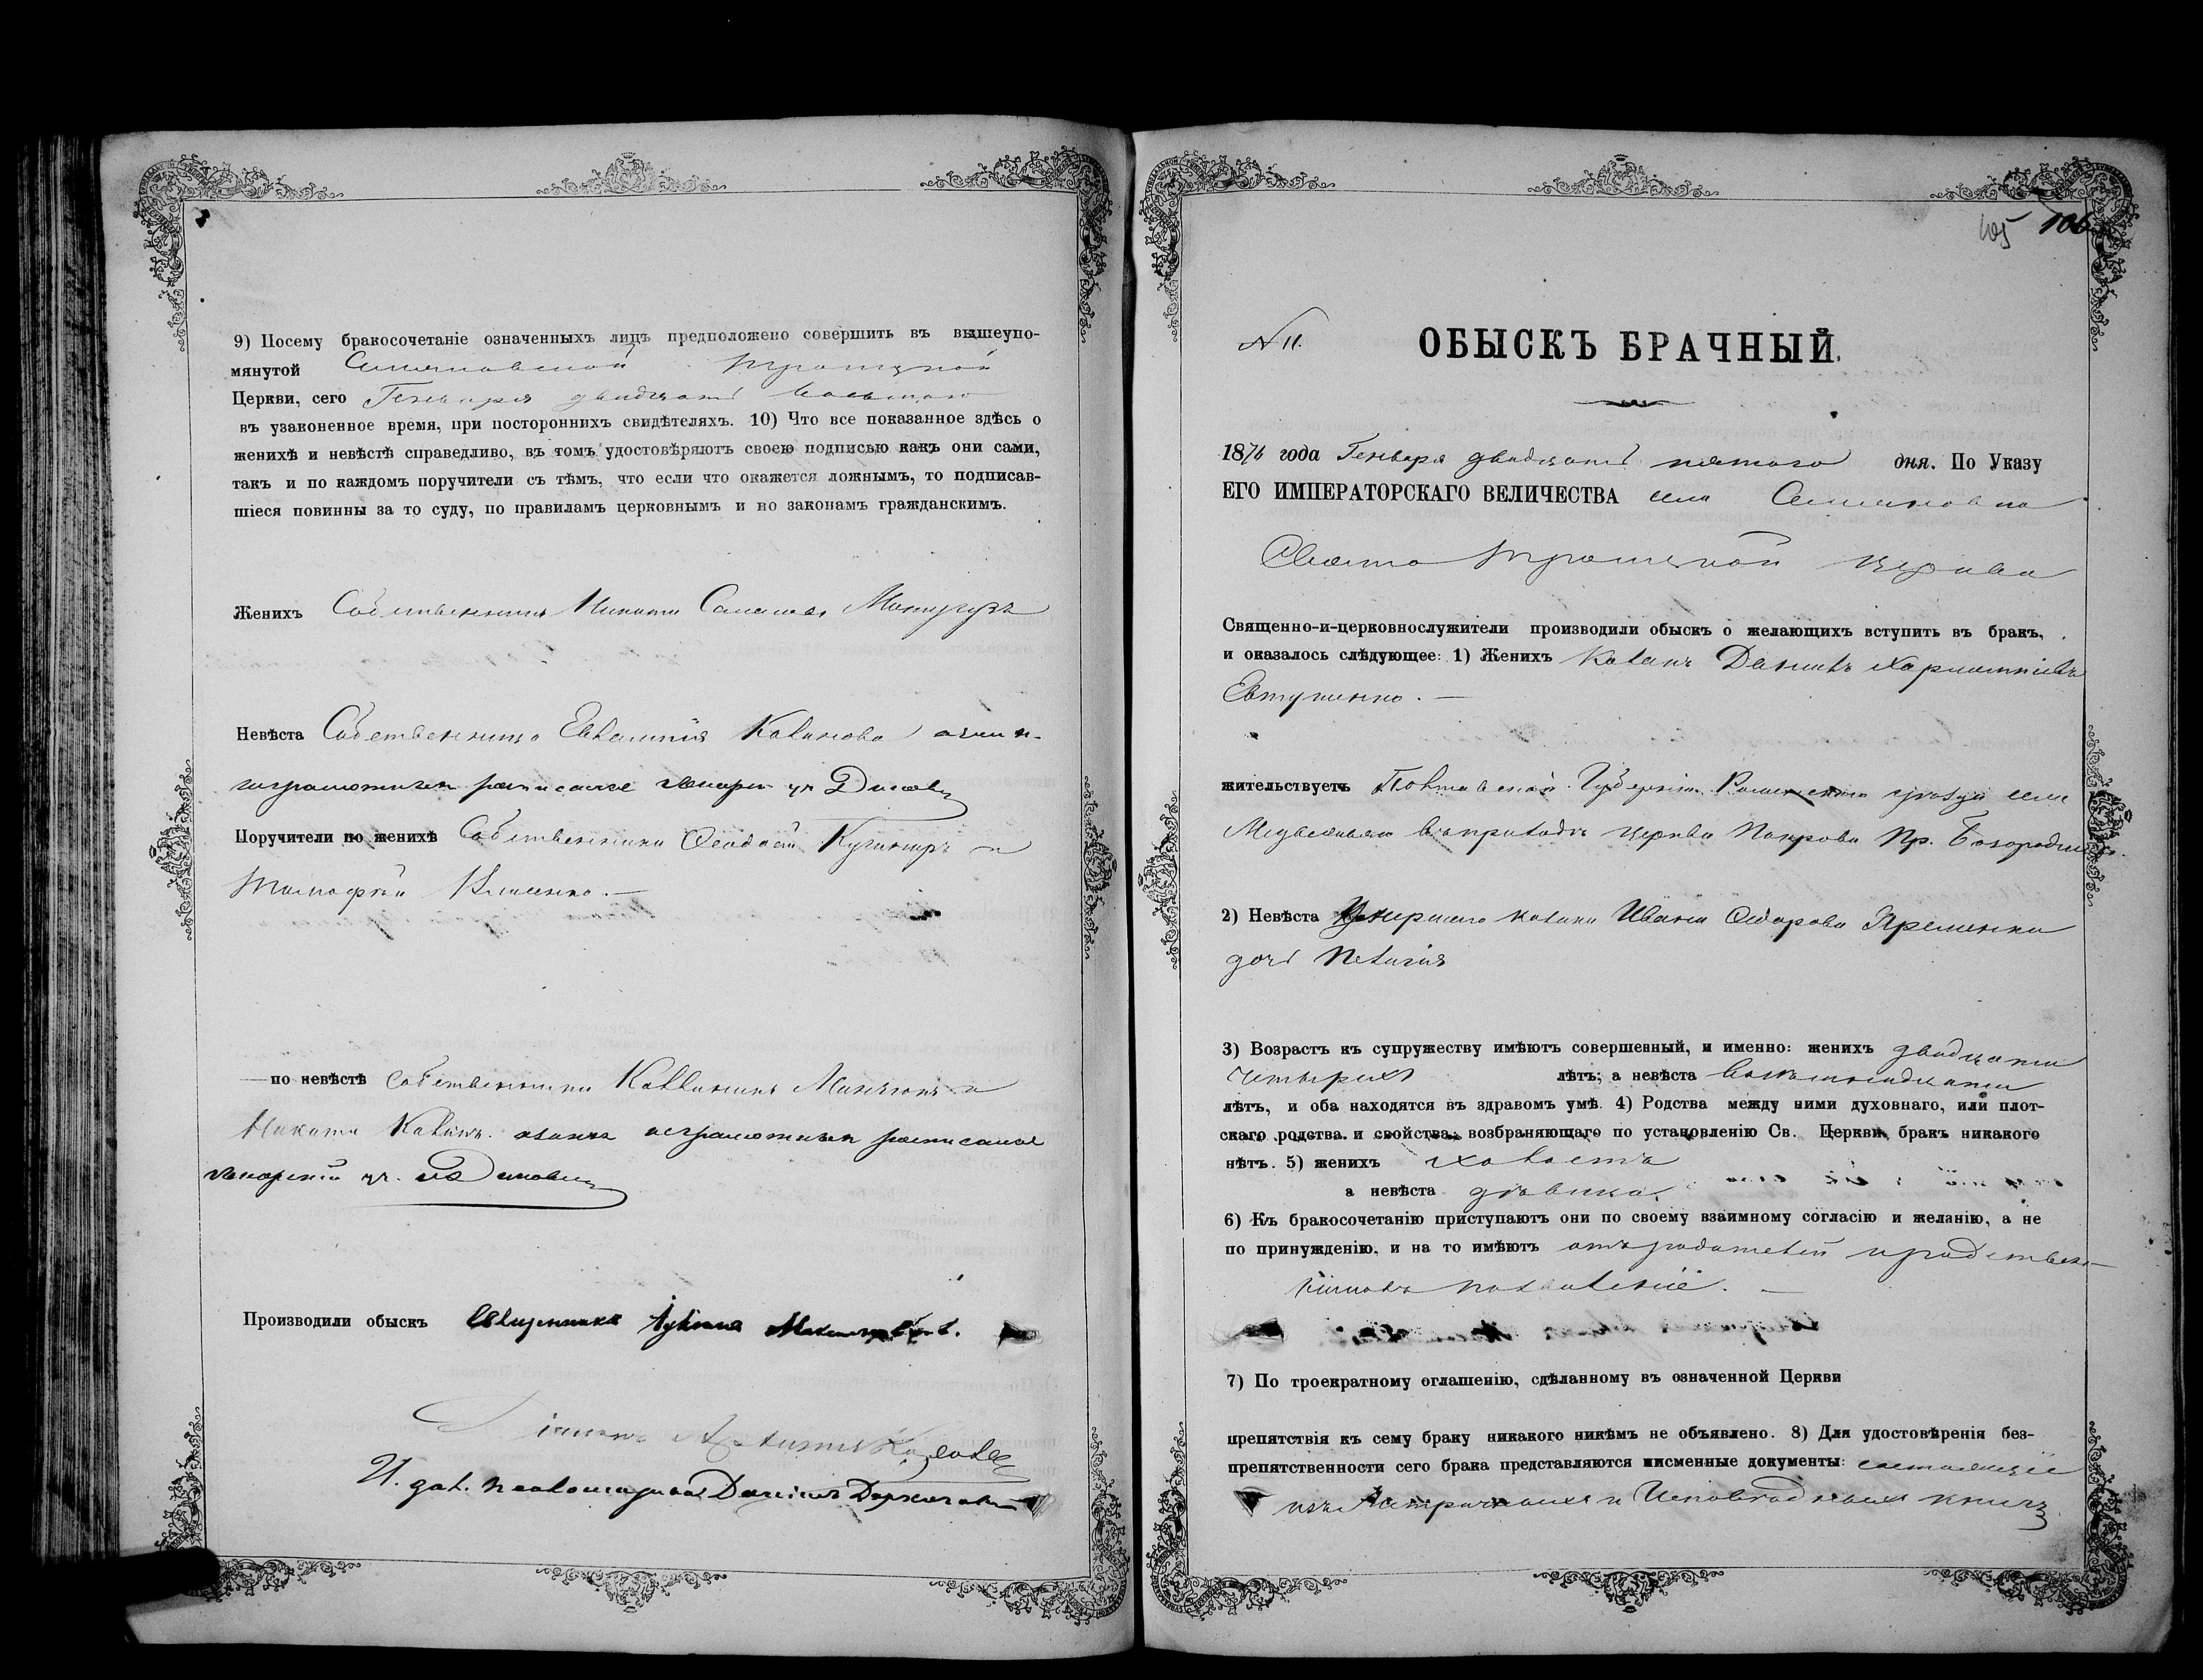 9) Посему бракосочетаніе означенныхъ лицъ предположено совершить въ вышеупо-
мянутой Семеновской Троицкой
Церкви, сего Генваря двадцать восьмого
въ узаконенное время, при постороннихъ свидѣтеляхъ. 10) Что все показанное здѣсь о
женихѣ и невѣстѣ справедливо, въ томъ удостовѣряютъ своею подписью какъ они сами,
такъ и по каждомъ поручители съ тѣмъ, что если что окажется ложнымъ, то подписав-
шіеся повинны за то суду, по правиламъ церковнымъ и по законамъ гражданскимъ.
Женихъ Собственникъ Никита
Невѣста Собственница Евлампія
неграмотныхъ росписался
Поручители по женихѣ Собственники Феодосій Кушниръ и
Тимофѣй Клименко.
по невѣстѣ собственники
Никита неграмотныхъ росписался
Производили обыскъ Священникъ
Діаконъ
И. дол. псаломщика Даніилъ
105 106
N 11.
ОБЫСКЪ БРАЧНЫЙ.
1876 года Генваря двадцать пятого дня. По Указу
ЕГО ИМПЕРАТОРСКАГО ВЕЛИЧЕСТВА села Семеновка
Свято Троицкой церкви
Священно-и-церковнослужители производили обыскъ о желающихъ вступить въ бракъ,
и оказалось слѣдующее: 1) Женихъ Козакъ Даніилъ Харлампіевъ
Евтушенко.
жительствуетъ Полтавской Губерніи Роменского уѣзда села
въ приходѣ церкви Покрова Пр. Богородицы.
2) Невѣста Умершего козака Ивана Федорова Яременка
дочь Пелагія
3) Возрастъ къ супружеству имѣютъ совершенный, и именно: женихъ двадцати
четырехъ лѣтъ; а невѣста восемнадцати
лѣтъ, и оба находятся въ здравомъ умѣ. 4) Родства между ними духовнаго, или плот-
скаго родства и свойства, возбраняющаго по установленію Св. Церкви, бракъ никакого
нѣтъ. 5) женихъ холостъ
а невѣста дѣвица.
6) Къ бракосочетанію приступаютъ они по своему взаимному согласію и желанію, а не
по принужденію, и на то имѣютъ отъ родителей и родствен-
никовъ позволеніе.
7) По троекратному оглашенію, сдѣланному въ означенной Церкви
препятствія къ сему браку никакого никѣмъ не объявлено. 8) Для удостовѣренія без-
препятственности сего брака представляются писменные документы: состоящіе
изъ Метрическихъ и Исповѣдныхъ книгъ